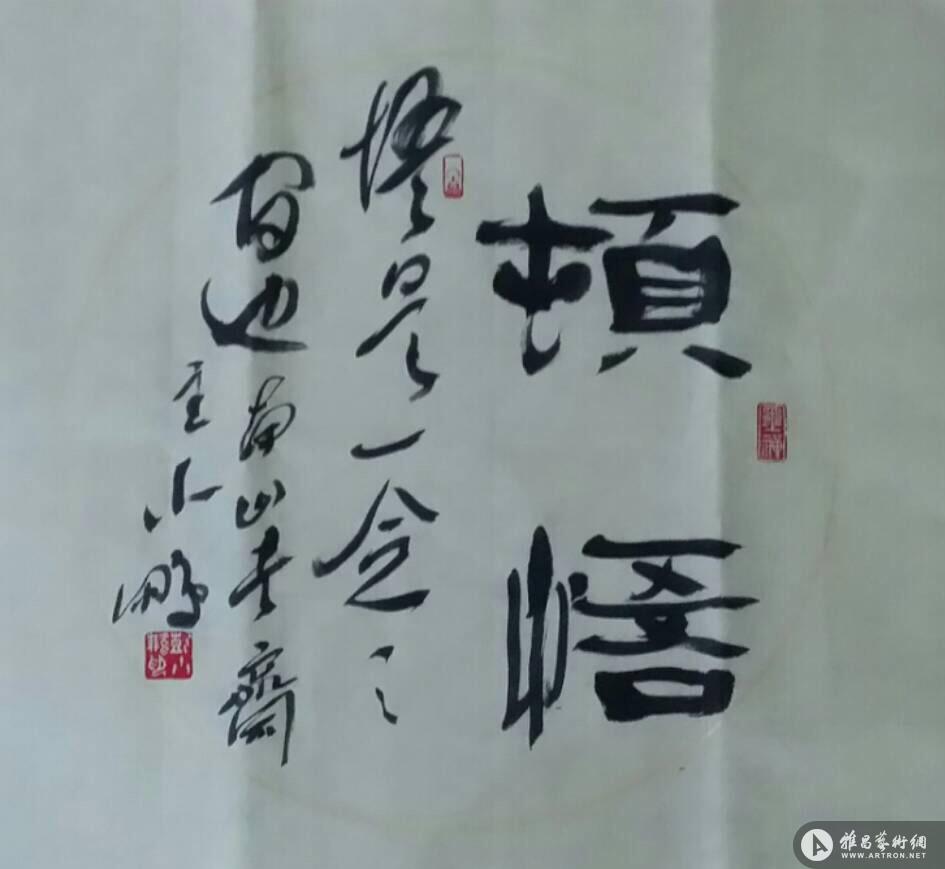 頓悟
悟是一念之
間也 南山書齋
主小鵬
雅昌藝術網
WWW.ARTRON.NET